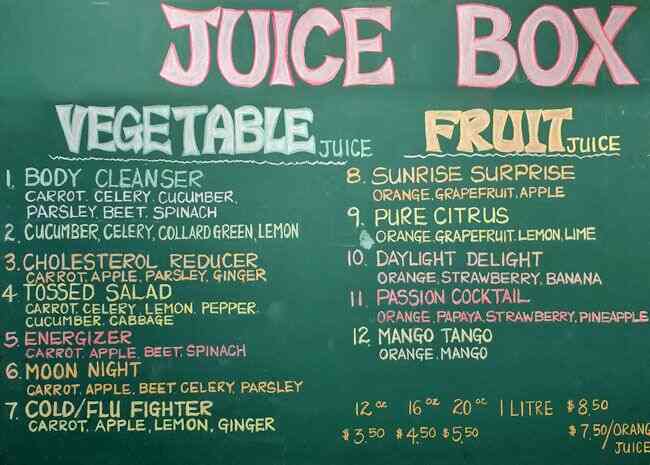 JUICE BOX
VEGETABLE JUICE
1. BODY CLEANSER
CARROT. CELERY. CUCUMBER,
PARSLEY. BEET. SPINACH
2. CUCUMBER, CELERY, COLLARD GREEN, LEMON
3. CHOLESTEROL REDUCER
CARROT. APPLE. PARSLEY, GINGER
4. TOSSED SALAD
CARROT. CELERY. LEMON. PEPPER.
CUCUMBER. CABBAGE
5. ENERGIZER
CARROT. APPLE. BEET. SPINACH
6. MOON NIGHT
CARROT. APPLE. BEET CELERY, PARSLEY
7. COLD/FLU FIGHTER
CARROT, APPLE, LEMON, GINGER
FRUIT JUICE
8. SUNRISE SURPRISE
ORANGE. GRAPEFRUIT. APPLE
9. PURE CITRUS
ORANGE. GRAPEFRUIT. LEMON, LIME
10. DAYLIGHT DELIGHT
ORANGE, STRAWBERRY, BANANA
11. PASSION COCKTAIL
ORANGE, PAPAYA, STRAWBERRY, PINEAPPLE
12. MANGO TANGO
ORANGE, MANGO
12 oz 16 oz 20 oz 1 LITRE $8.50
$3.50 $4.50 $5.50 $7.50/ORANG
JUICE